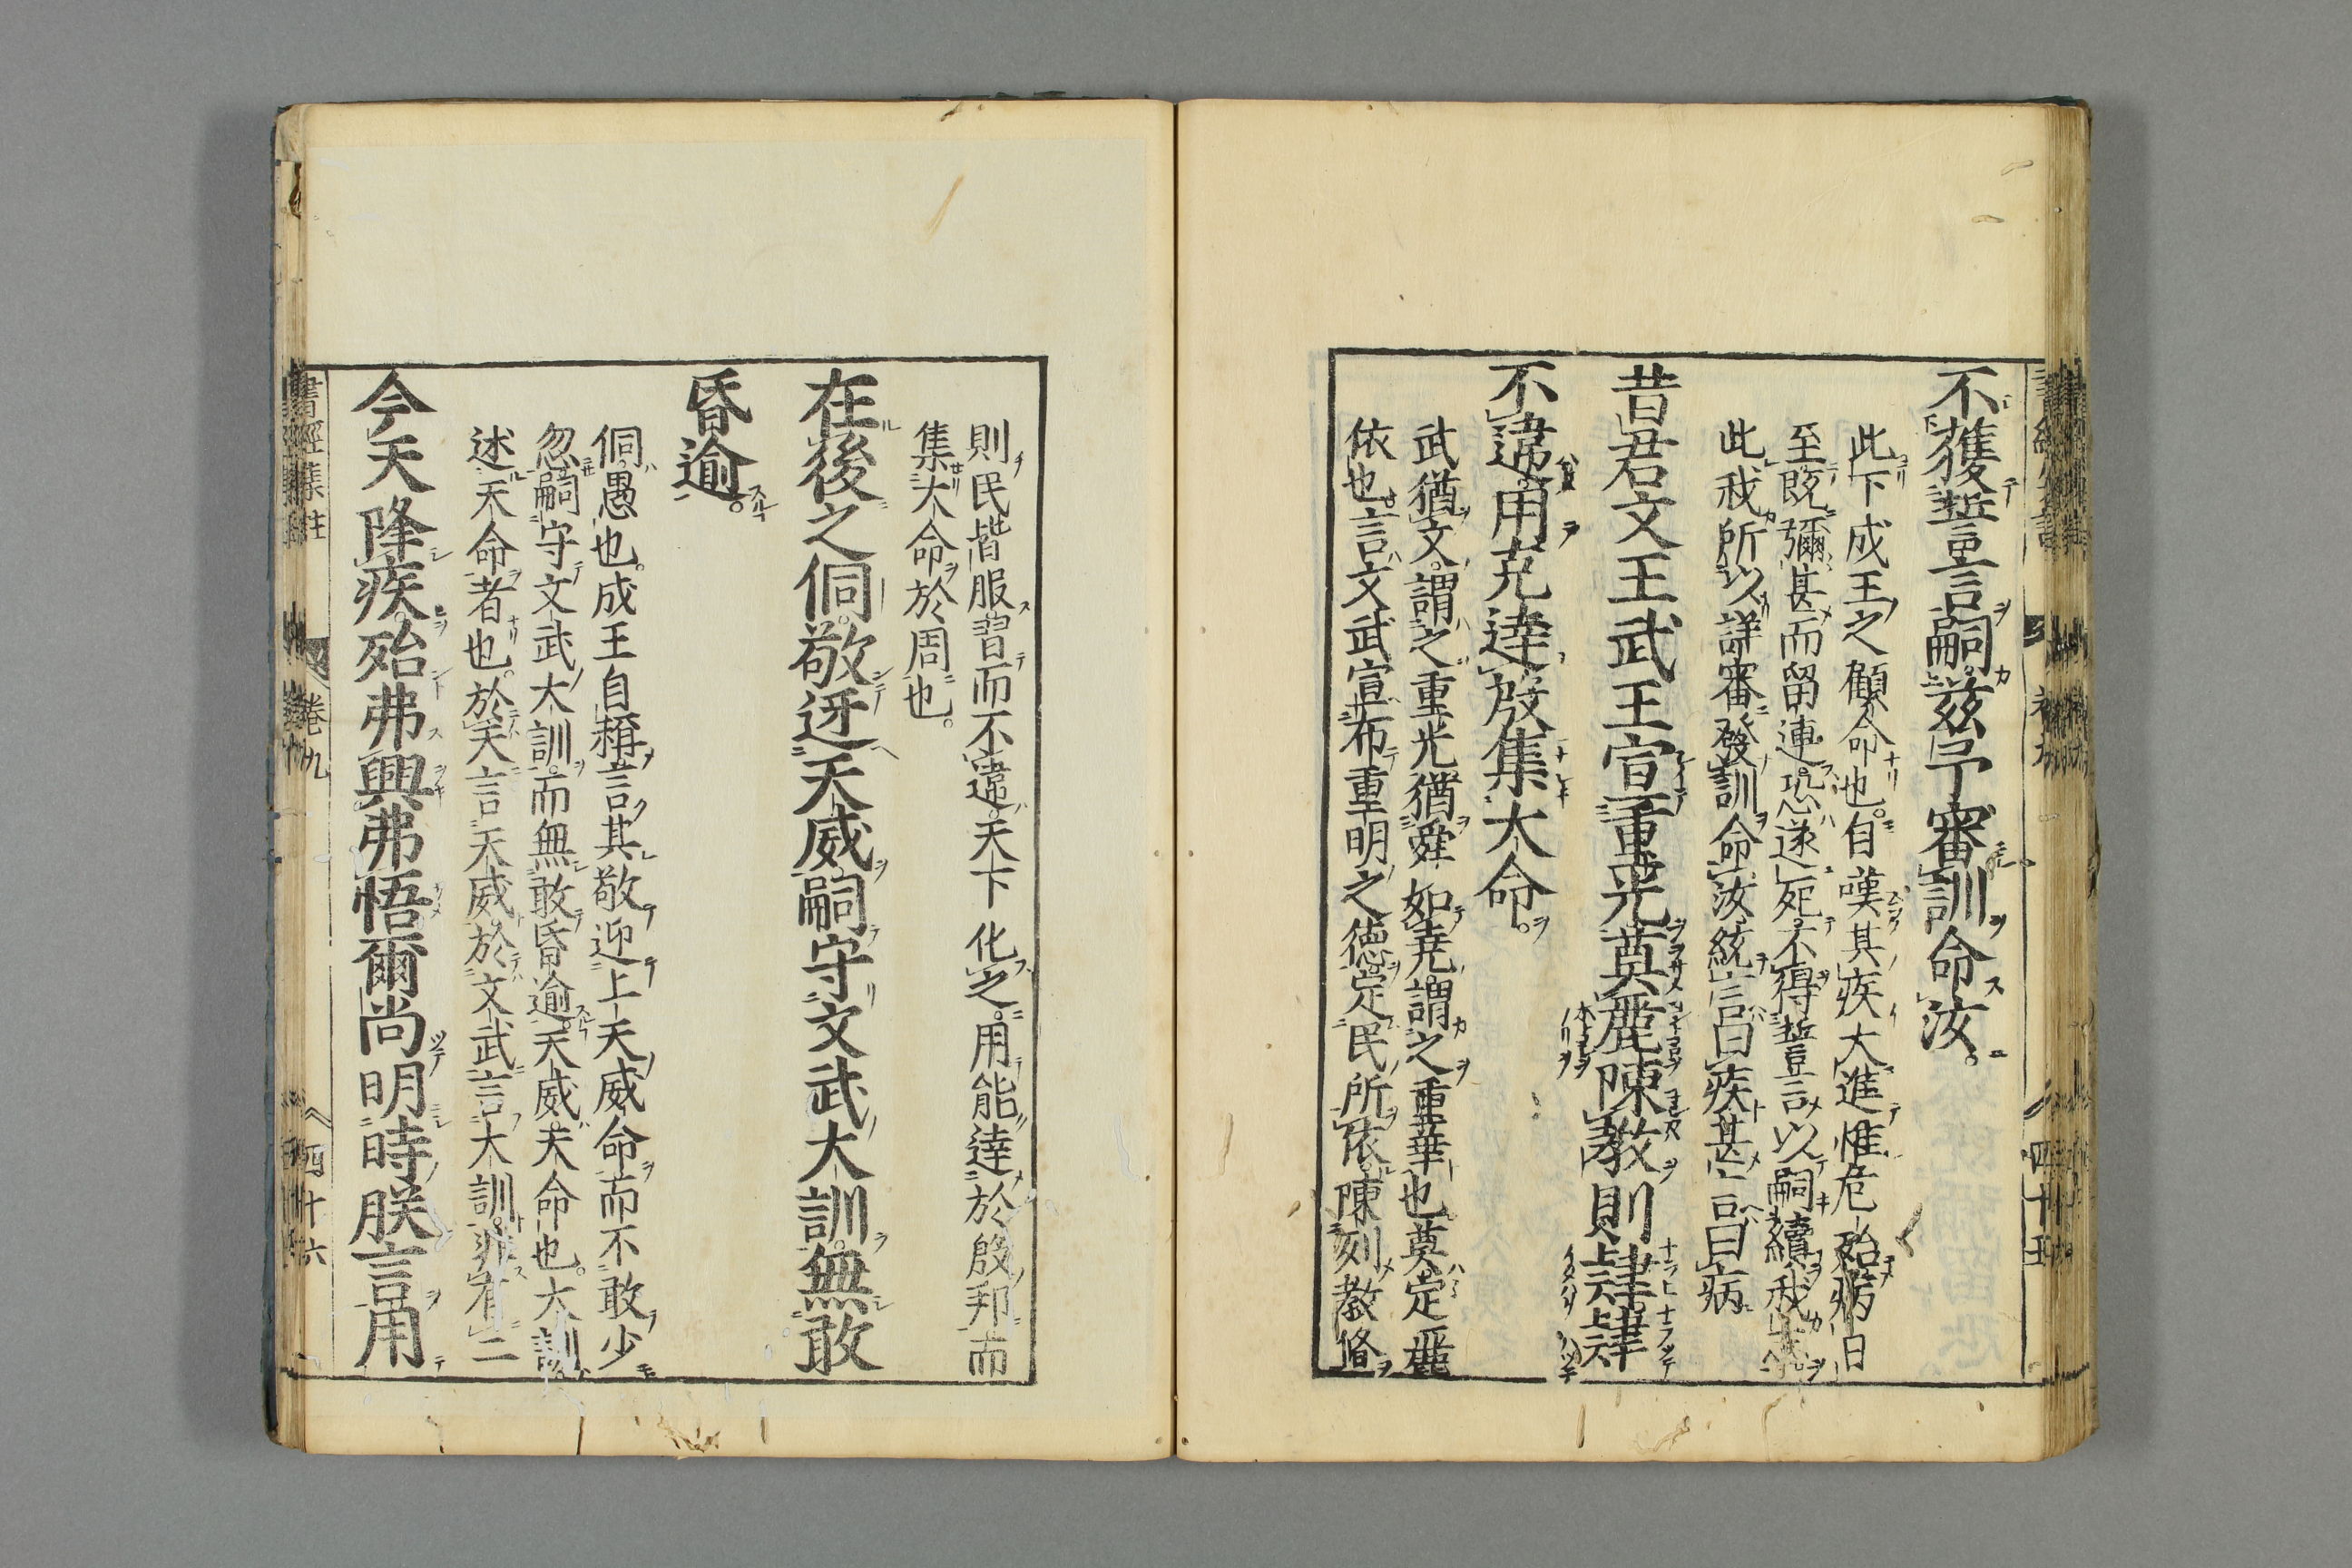 不獲誓言嗣茲予審訓命汝
此下成王之顧命也自嘆其疾大進惟危殆病日
至既彌甚而留連恐遂死不得誓言以嗣續我志
此我所以詳審發訓命汝統言曰疾甚言曰病
昔君文王武王宣重光奠麗陳教則肄肄
不違用克達殷集大命
武猶文謂之重光猶舜如堯謂之重華也奠定麗
依也言文武宣布重明之德定民所依陳列教條
則民皆服習而不違天下化之用能達於殷邦而
集大命於周也
在後之侗敬迓天威嗣守文武大訓無敢
昏逾
侗愚也成王自稱言其敬迎上天威命而不敢少
忽嗣守文武大訓而無敢昏逾天威天命也大訓
述天命者也於天言天威於文武言大訓非有二
今天降疾殆弗興弗悟爾尚明時朕言用
書經集註 卷九 四十六